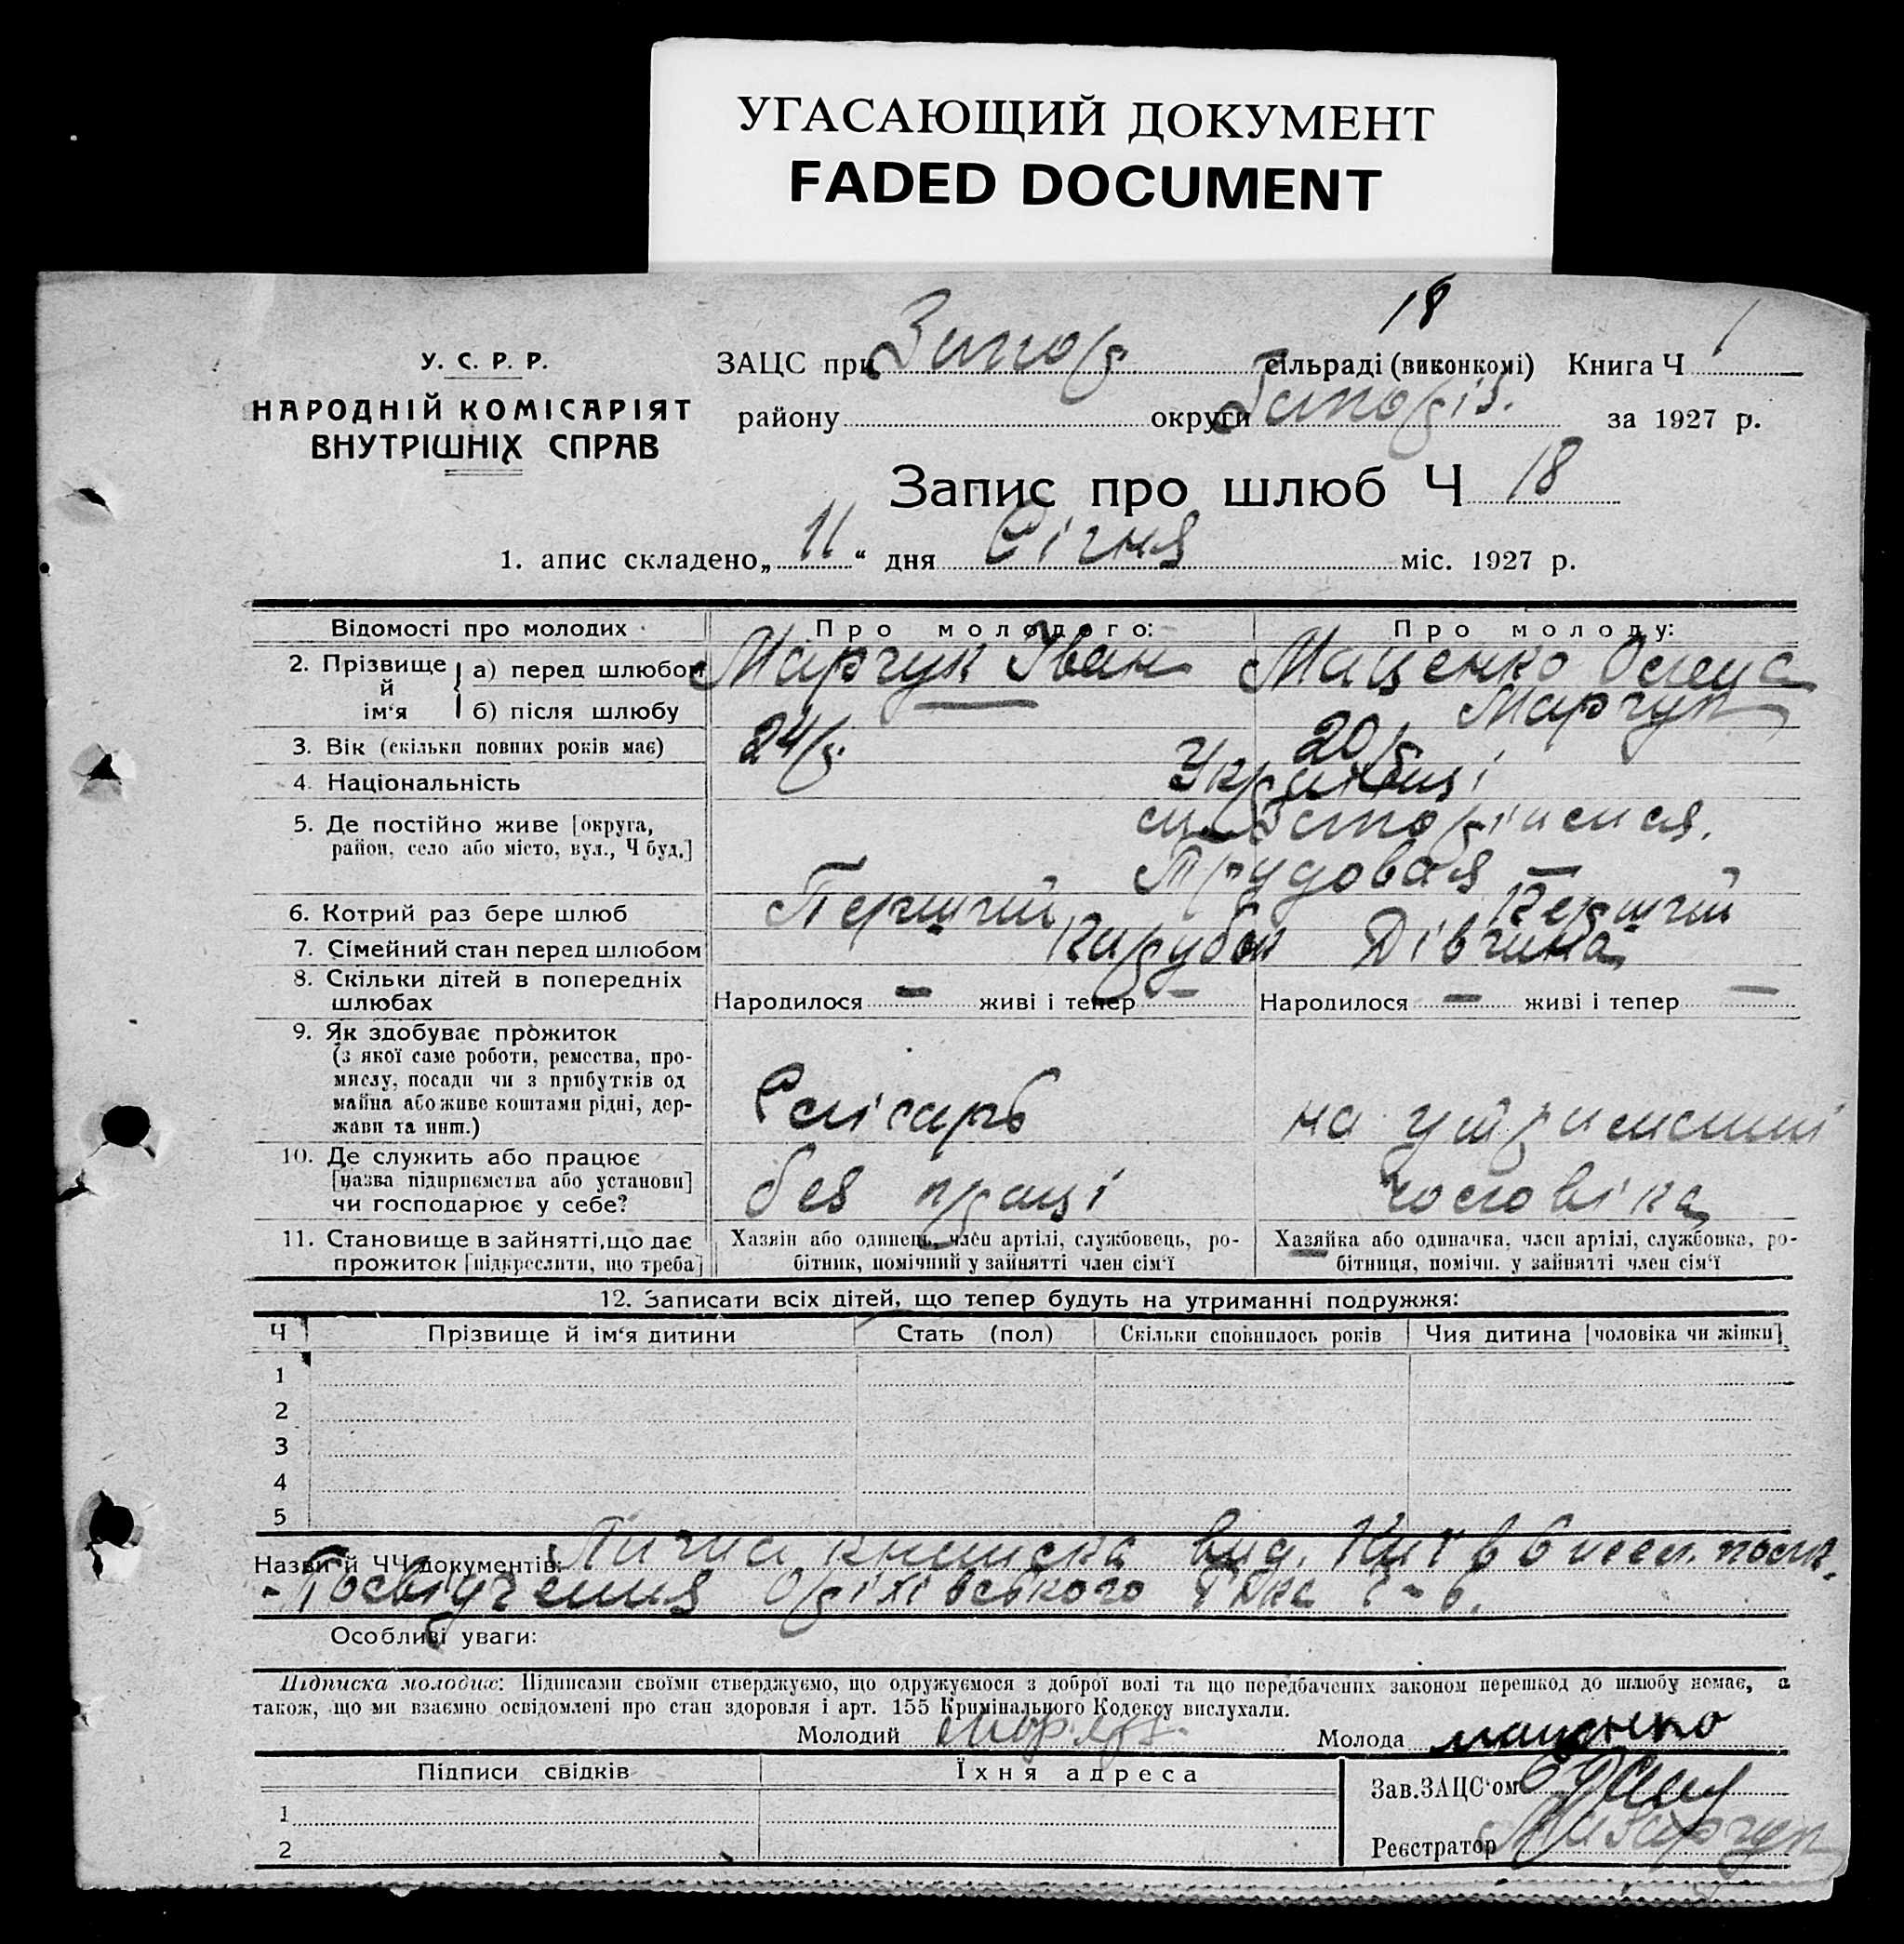 УГАСАЮЩИЙ ДОКУМЕНТ
FADED DOCUMENT
18
У. С. Р. Р.
НАРОДНІЙ КОМІСАРІЯТ
ВНУТРІШНІХ СПРАВ
ЗАЦС при Запор сільраді (виконкомі) Книга Ч 1
району округи Запоріз. за 1927 р.
Запис про шлюб Ч 18
1. апис складено „11“ дня Січня міс. 1927 р.
Відомості про молодих Про молодого: Про молоду:
2. Прізвище й ім‘я а) перед шлюбом Марчук Іван Мащенко
б) після шлюбу Марчук
3. Вік (скільки повних років має) 24 р. 20 р
4. Національність Українці
5. Де постійно живе [округа,
район, село або місто, вул., Ч буд.]
Трудовая —
6. Котрий раз бере шлюб Перший Перший
7. Сімейний стан перед шлюбом Парубок Дівчина
8. Скільки дітей в попередніх
шлюбах Народилося — живі і тепер — Народилося — живі і тепер —
9. Як здобуває прожиток
(з якої саме роботи, ремества, про-
мислу, посади чи з прибутків од
майна або живе коштами рідні, дер-
жави та инш.) Слісарь на утриманні
10. Де служить або працює
[назва підприємства або установи]
чи господарює у себе? без праці чоловіка
11. Становище в зайнятті, що дає
прожиток [підкреслити, що треба]
Хазяін або одинець, член артілі, службовець, ро-
бітник, помічний у зайнятті член сім‘ї
Хазяйка або одиначка, член артілі, службовка, ро-
бітниця, помічн. у зайнятті член сім‘ї
12. Записати всіх дітей, що тепер будуть на утриманні подружжя:
Ч Прізвище й ім‘я дитини Стать (пол) Скільки сповнилось років Чия дитина [чоловіка чи жінки]
1
2
3
4
5
Назви й ЧЧ документів: книжка вид.
- Посвідчення Оріхівського
Особливі уваги:
Підписка молодих: Підписами своїми стверджуємо, що одружуємося з доброї волі та що передбачених законом перешкод до шлюбу немає, а
також, що ми взаємно освідомлені про стан здоровля і арт. 155 Кримінального Кодексу вислухали.
Молодий Молода
Підписи свідків Їхня адреса
Зав. ЗАЦС‘ом
1
Реєстратор
2